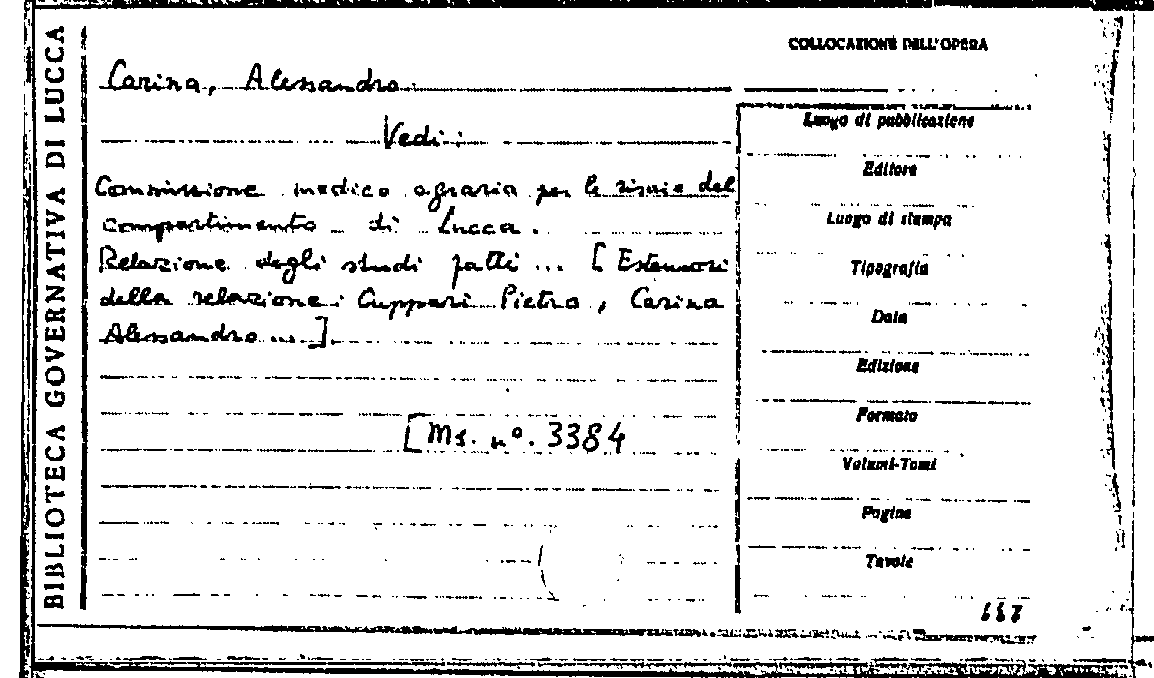 BIBLIOTECA GOVERNATIVA DI LUCCA
COLLOCAZIONE DELL'OPERA
Carina, Alessandro.
Vedi:
Commissione medico agraria per le risaie del
compartimento di Lucca.
Relazione degli studi fatti ... [Estensori
della relazione: Cuppari Pietro, Carina
Alessandro ... ].
[Ms. nº. 3384
Luogo di pubblicazione
Editore
Luogo di stampa
Tipografia
Data
Edizione
Formato
Volumi-Tomi
Pagine
Tavole